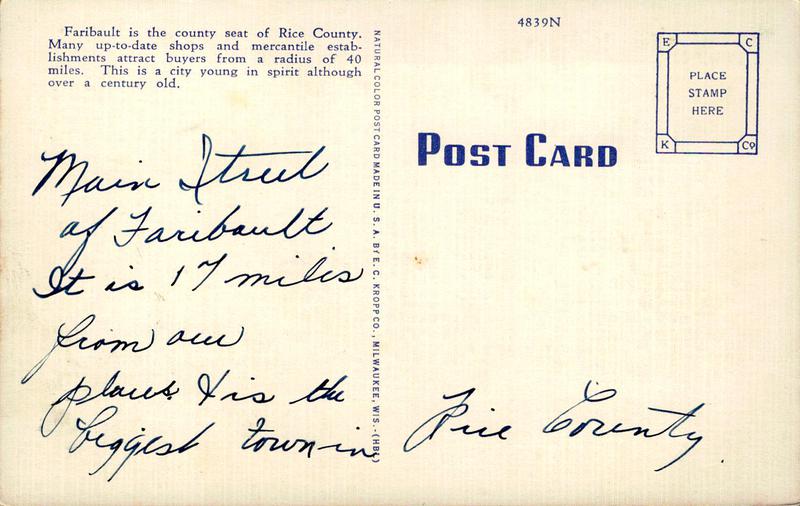 Faribault is the county seat of Rice County.
Many up-to-date shops and mercantile estab-
lishments attract buyers from a radius of 40
miles. This is a city young in spirit although
over a century old.
Main Street
of Faribault
It is 17 miles
from our
place & is the
biggest town in
NATURAL COLOR POST CARD MADE IN U. S. A. BY E. C. KROPP CO., MILWAUKEE, WIS.
4839N
E C
PLACE
STAMP
HERE
K Co
POST CARD
Rice County.